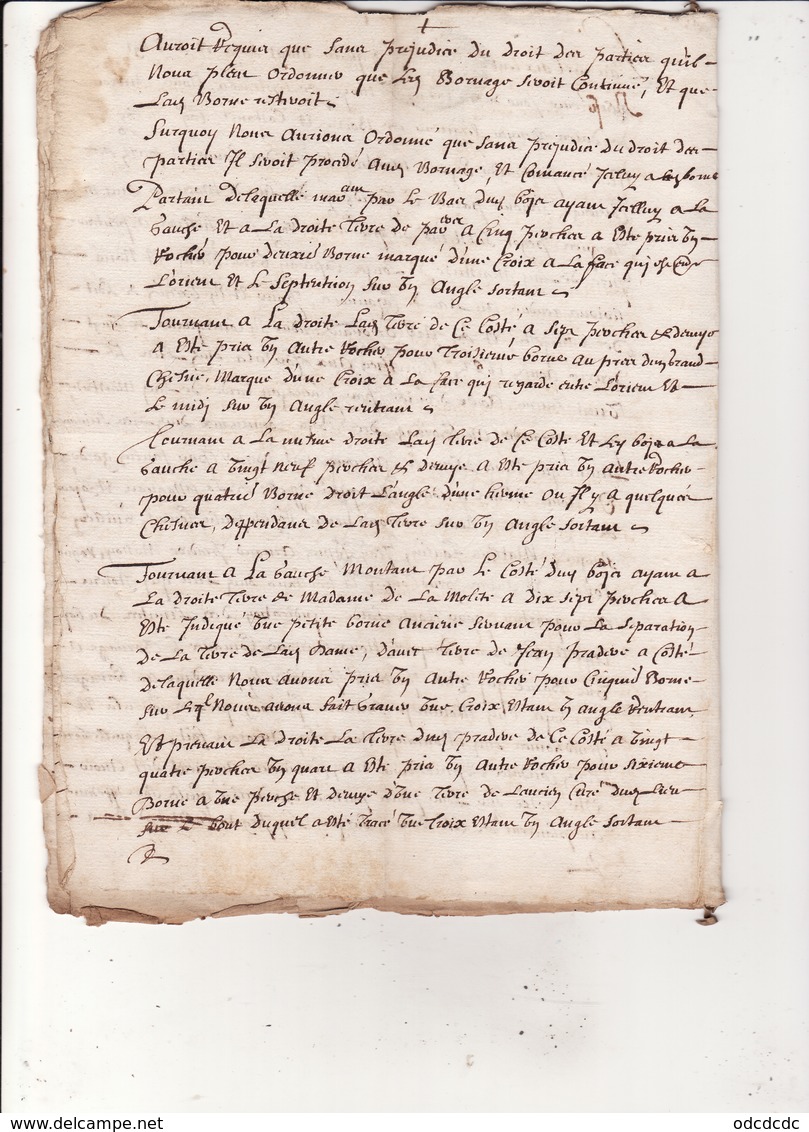 Auroit Requier que sans prejudice du droit des parties quil
Nous pleut Ordonner que led Bornage seroit Continué, Et que
Lad Borne resteroit
Surquoy Nous Aurions Ordonné que sans prejudice du droit des
parties Il seroit procédé Aud Bornage, Et Comancé Jcelluy a lad borne
Partant delaquelle par Le Bas dud bois ayant Jcelluy a La
Gauche Et a La droite terre de a Cinq perches a Esté pris Un
Rocher pour deuxie Borne marqué d'une Croix a La face qui est
L'orient Et Le Septention sur Un Angle sortant
Tournant a La droite Lad terre de Ce Costé a Sept perches & demye
a Esté pris Un Autre Rocher pour Troisieme borne au pres dun grand
Chesne, Marque d'une Croix a La face qui regarde entre L'orient Et
Le midy sur Un Angle rentrant
Tournant a La mesme droite Lad terre de Ce Costé Et Led bois a La
Gauche a Vingt neuf perches & demye a Esté pris Un Autre Rocher
pour quatrie Borne droit L'angle d'une herme ou Il y a quelques
Chesnes, deppendans de Lad terre sur Un Angle sortant
Tournant a La Gauche Montant par Le Costé dud bois ayant a
La droite terre de Madame de La Molete a dix sept perches a
Esté Jndiqué Une petite borne Anciene servant pour La separation
de La terre de Lad Dame, d'avec terre de Jean pradere a Costé
delaquelle Nous avons pris Un Autre Rocher pour Cinquie Borne
sur Leql Nous avons fait Graver Une Croix Estant Un Angle Rentrant,
Et prenant La droite La terre dud pradere de Ce Costé a Vingt
quatre perches Un quart a Esté pris Un Autre Rocher pour sixieme
Borne a Une perche Et demye d'Une terre de Lancien Curé dud Lieu
sur Le bout duquel a Esté tracé Une Croix Estant Un Angle sortant
odcdcdc